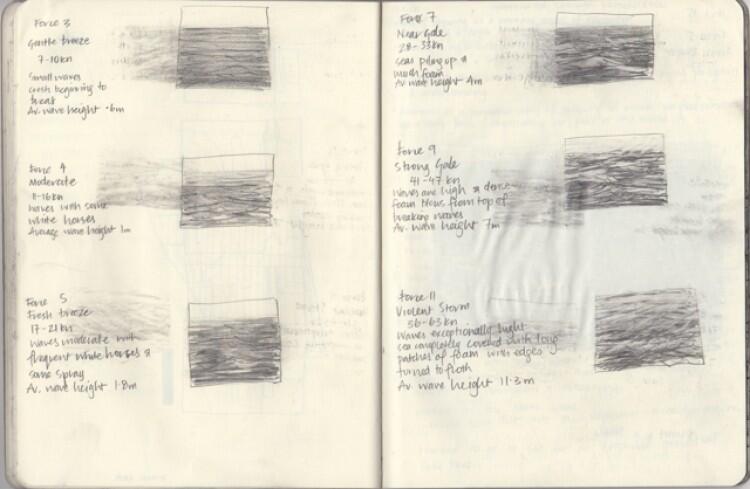 Force 3
Gentle breeze
7-10kn
Small waves
crests beginning to
break
Av. wave height ·6m
Force 4
Moderate
11-16kn
waves with some
white horses
Average wave height 1m
Force 5
Fresh breeze
17-21kn
waves moderate with
frequent white horses &
some spray
Av. wave height 1·8m
Force 7
Near Gale
28-33kn
seas piling up &
much foam
Av. wave height 4m
Force 9
Strong Gale
41-47kn
Waves are high & dense
foam blows from top of
breaking waves
Av. wave height 7m
Force 11
Violent Storm
56-63kn
Waves exceptionally hight
sea completely covered with long
patches of foam with edges
turned to froth
Av. wave height 11·3m